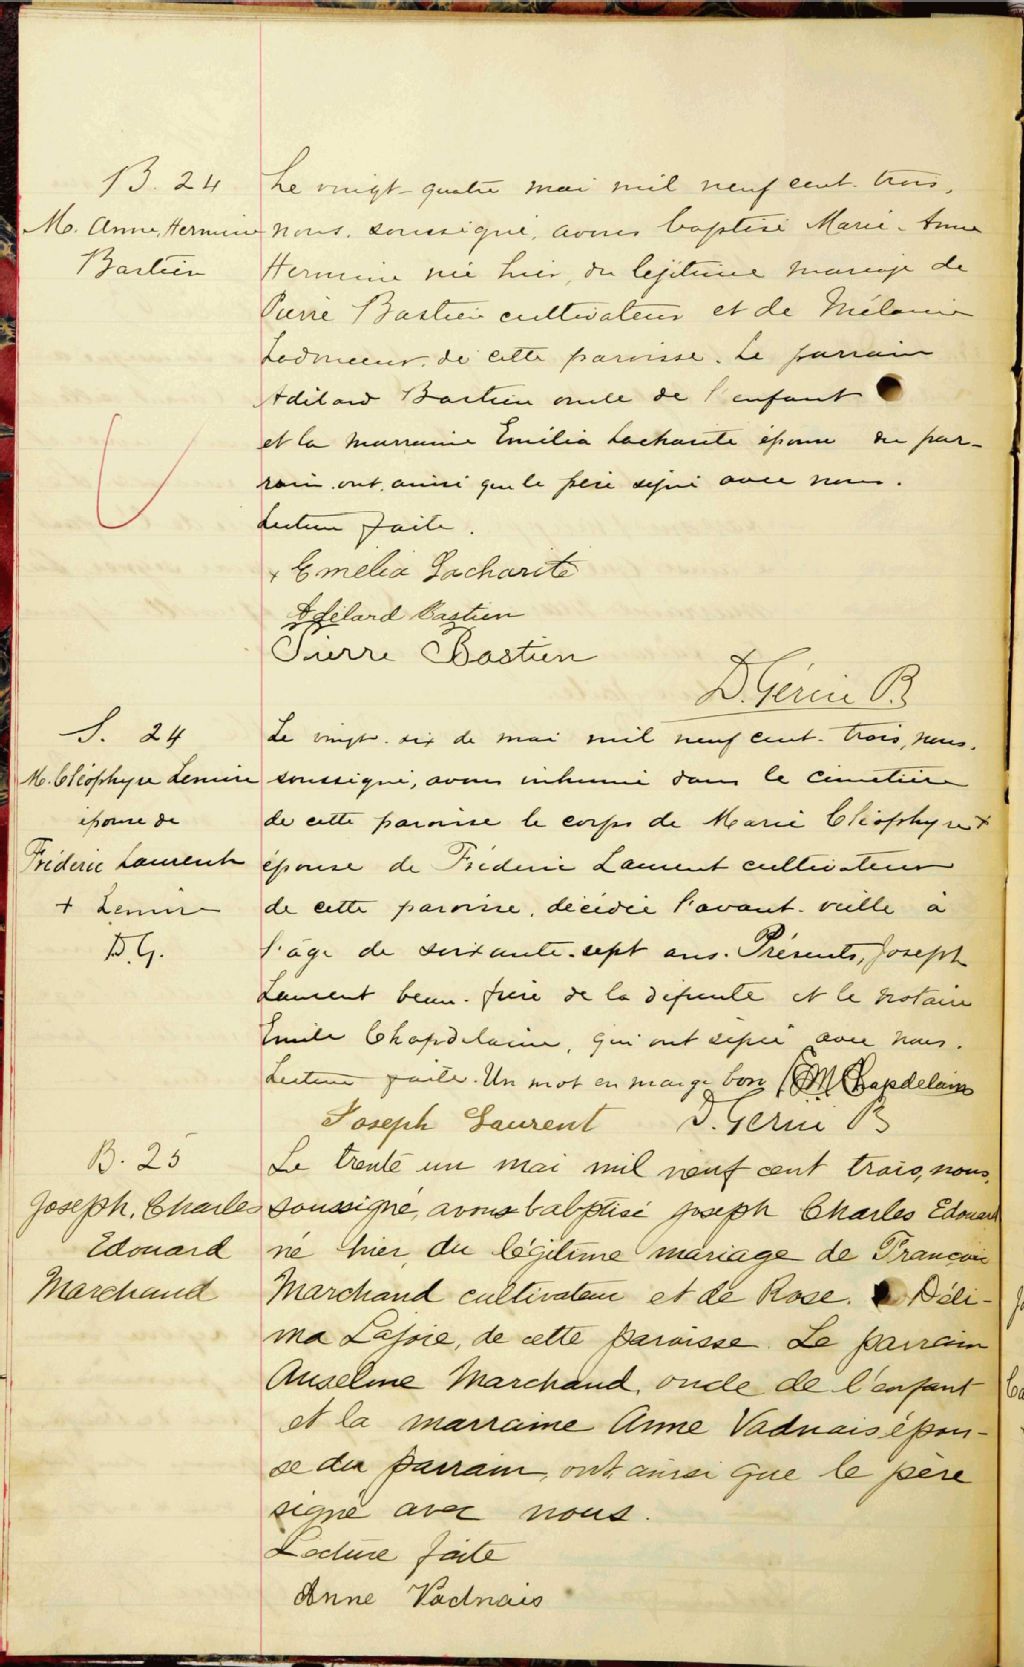 B. 24
M. Anne, Hermine
Bastien
Le vingt-quatre mai mil neuf cent trois,
nous, soussigné, avons baptisé Marie-Anne
Hermine née hier, du légitime mariage de
Pierre Bastien cultivateur et de Mélanie
Ladouceur, de cette paroisse. Le parrain
Adélard Bastien oncle de l'enfant
et la marraine Emélia Lacharité épouse du par-
rain, ont, ainsi que le père signé avec nous.
Lecture faite.
+ Emelia Lacharité
Adélard Bastien
Pierre Bastien
D. Gérin P.
S. 24
M. Cléophyre Lemire
épouse de
Fréderic Laurent
+ Lemire
D.G.
Le vingt-six de mai mil neuf cent-trois, nous,
soussigné, avons inhumé dans le cimetière
de cette paroisse le corps de Marie Cléophyre +
épouse de Fréderic Laurent cultivateur
de cette paroisse, décédée l'avant-veille à
l'âge de soixante-sept ans. Présents, Joseph
Laurent beau-frère de la défunte et le notaire
Emile Chapdelaine, qui ont signé avec nous.
Lecture faite. Un mot en marge bon Chapdelaine
Joseph Laurent D. Gérin P.
B. 25
Joseph, Charles
Edouard
Marchand
Le trente un mai mil neuf cent trois, nous,
soussigné, avons babptisé Joseph Charles Edouard
né hier, du légitime mariage de François
Marchand cultivateur et de Rose. Déli-
ma Lajoie, de cette paroisse. Le parrain
Anselme Marchand, oncle de l'enfant
et la marraine Anne Vadnais épou-
se du parrain, ont, ainsi que le père
signé avec nous.
Lecture faite
Anne Vadnais